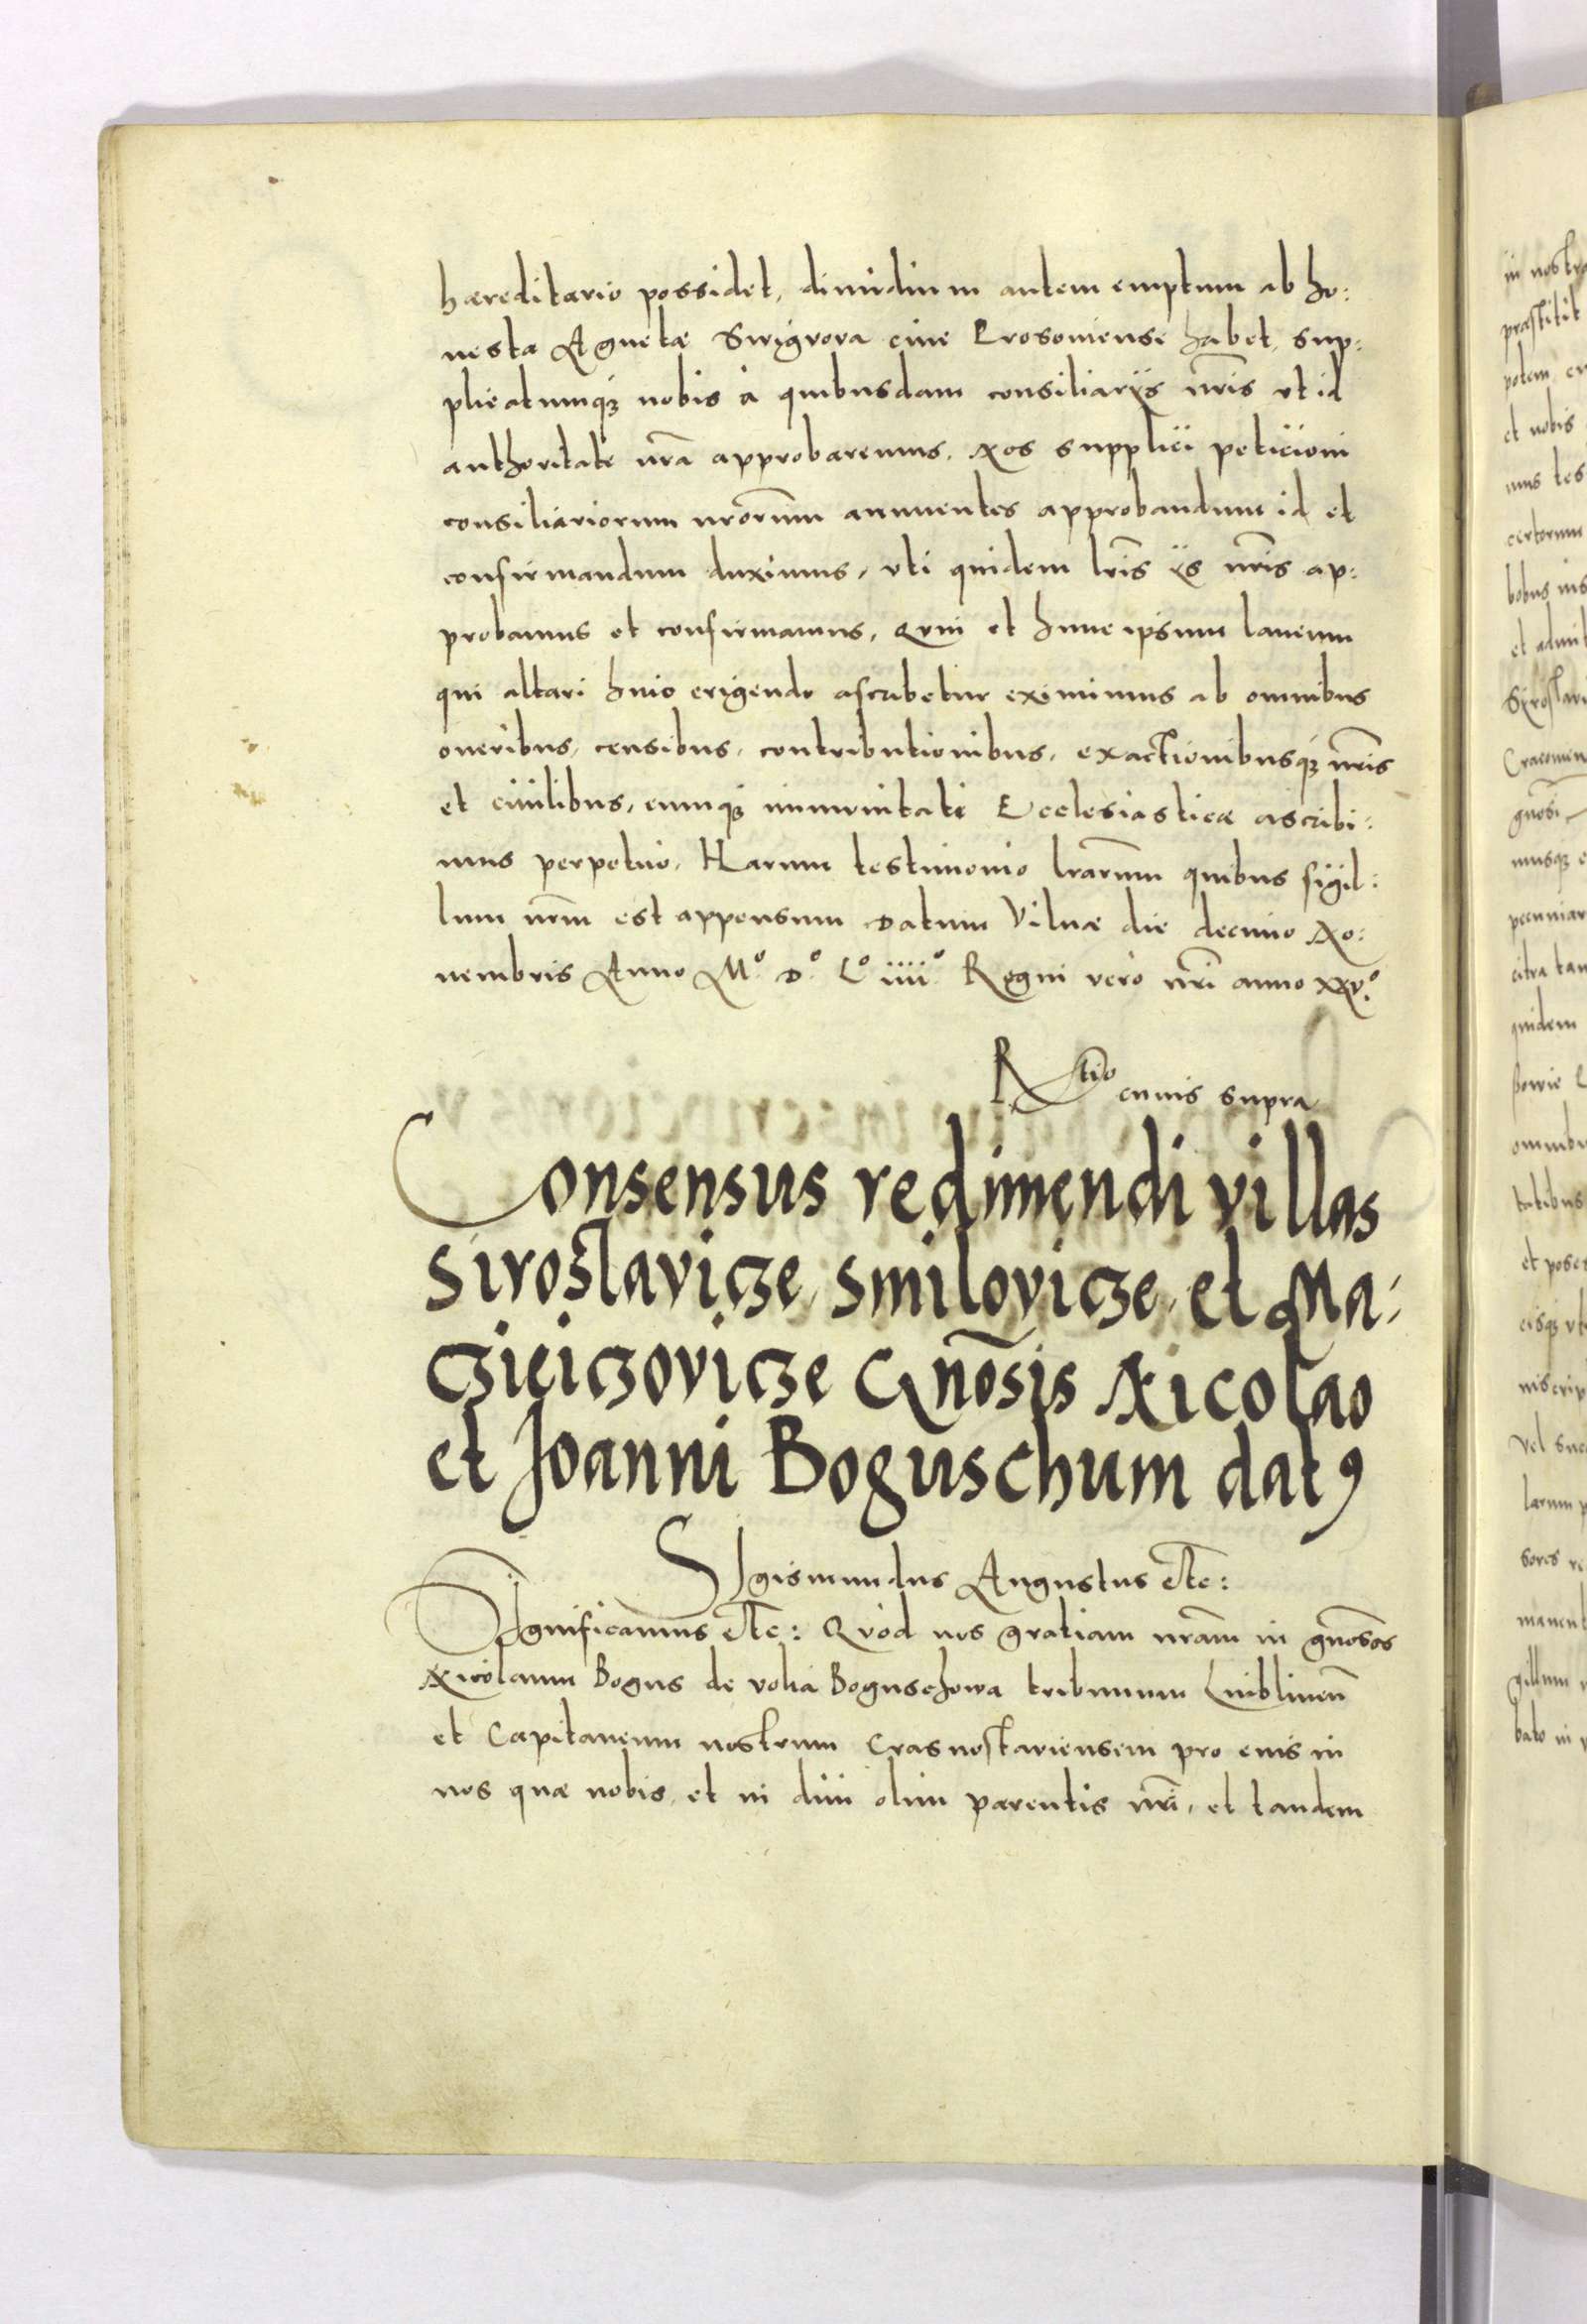 haereditario possidet, dimidium autem emptum ab ho:
nesta Agneta Swigrova cive Crosoniense habet, sup:
plicatumq3 nobis à quibusdam consiliarijs nr̃is vt id
authoritate nr̃a approbaremus. Nos supplici peticioni
consiliariorum nr̃orum annuentes approbandum id et
confirmandum duximus, vti quidem lr̃is ijs nr̃is ap:
probamus et confirmamus. Quin et hunc ipsum laneum
qui altari huic erigendo ascribetur eximimus ab omnibus
oneribus, censibus, contributionibus, exactionibusq3 nr̃is
et civilibus, eumq3 immunitati Ecclesiasticae ascribi:
mus perpetuo. Harum testimonio lr̃arum quibus sigil:
lum nr̃m est appensum Datum Vilnae die decimo No:
nembris Anno Mº. Dº. Lº. iiiiº. Regni vero nr̃i anno xxvº.
Rtio cuius supra
Consensus redimendi villas
Siroslavicze, Smilovicze, et Ma:
cziciczovicze Gñosis Nicolao
et Joanni Boguschum datꝰ
Sigismundus Augustus etc:
Significamus etc: Quòd nos gratiam nr̃am in gñosos
Nicolaum Bogus de volia Boguschowa tribunum Lublineñ
et Capitaneum nostrum Crasnostaviensem pro eius in
nos quae nobis, et in divi olim parentis nr̃i, et tandem
in nostra
praestitit
potem
et nobis
mus tes
certorum
bobus ins
et admit
Siroslavi
Cracovien
gñosi
musq3 e
pecuniar
citra tan
quidem
omnibu
tatibus
et poses
eisq3 vt
inscrip
Vel suc
larum p
sores re
manent
gillum
bato in